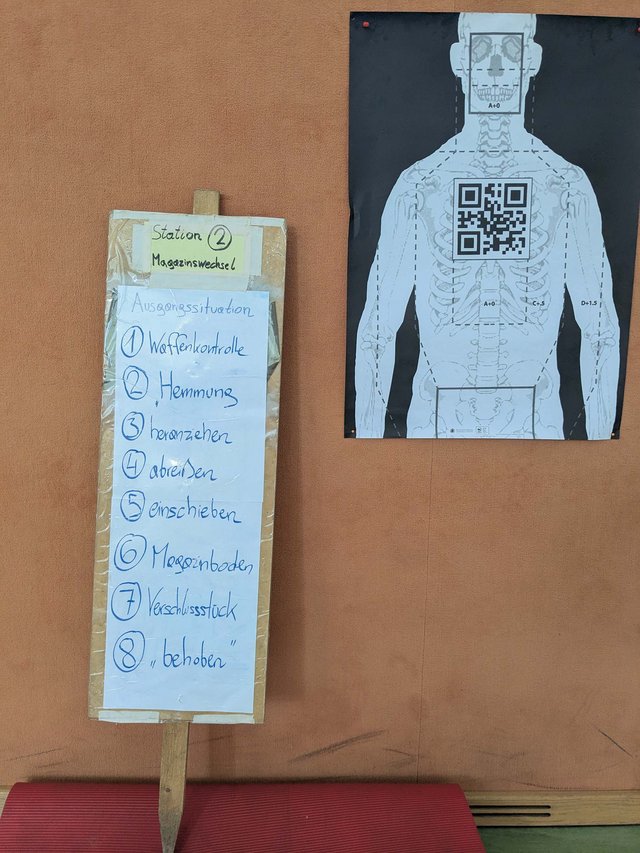 Station ②
Magazinswechsel
Ausgangssituation
① Waffenkontrolle
② „Hemmung
③ heranziehen
④ abreißen
⑤ einschieben
⑥ Magazinboden
⑦ Verschlussstück
⑧ „behoben“
A=0
A=0
C+.5
D+1.5